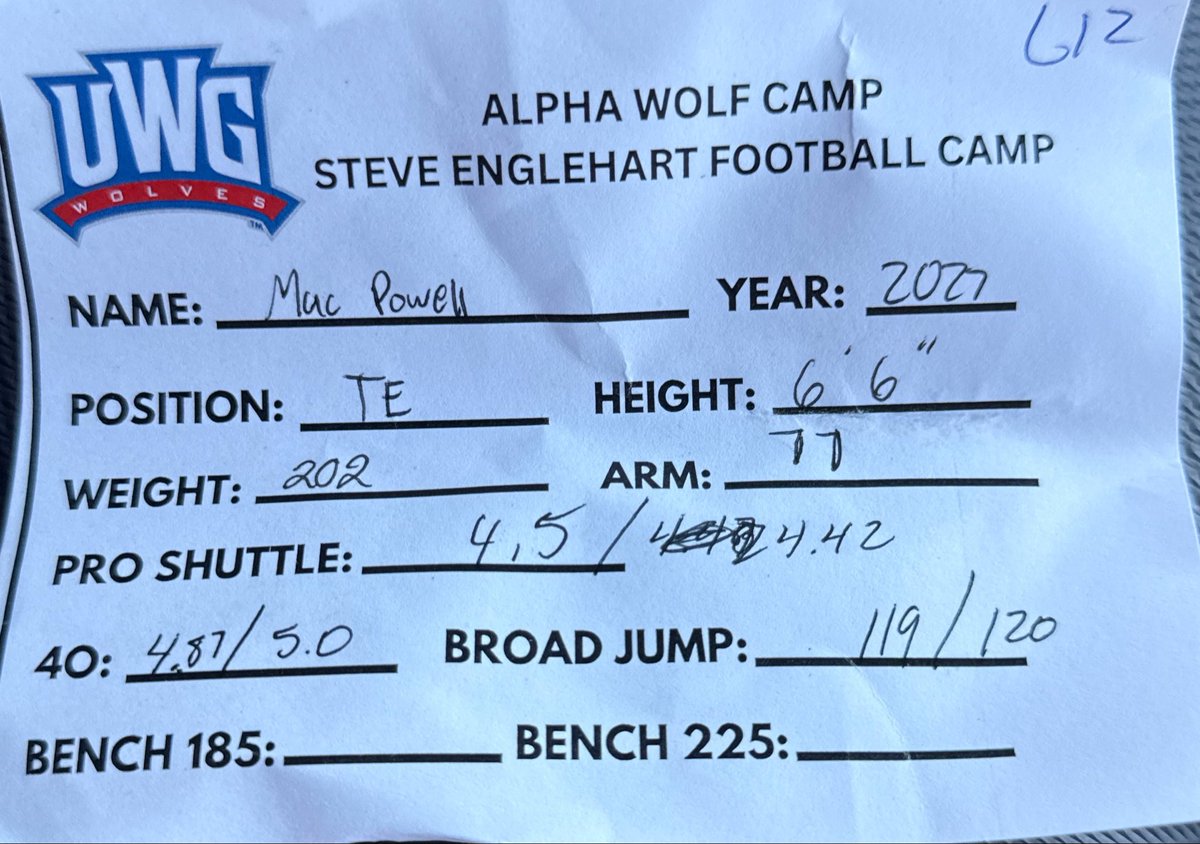 612
UWG
WOLVES
TM
ALPHA WOLF CAMP
STEVE ENGLEHART FOOTBALL CAMP
NAME: Mac Powell YEAR: 2027
POSITION: TE HEIGHT: 6' 6"
WEIGHT: 202 ARM: 77
PRO SHUTTLE: 4.5 / 4.42
40: 4.87/5.0 BROAD JUMP: 119/120
BENCH 185: BENCH 225: